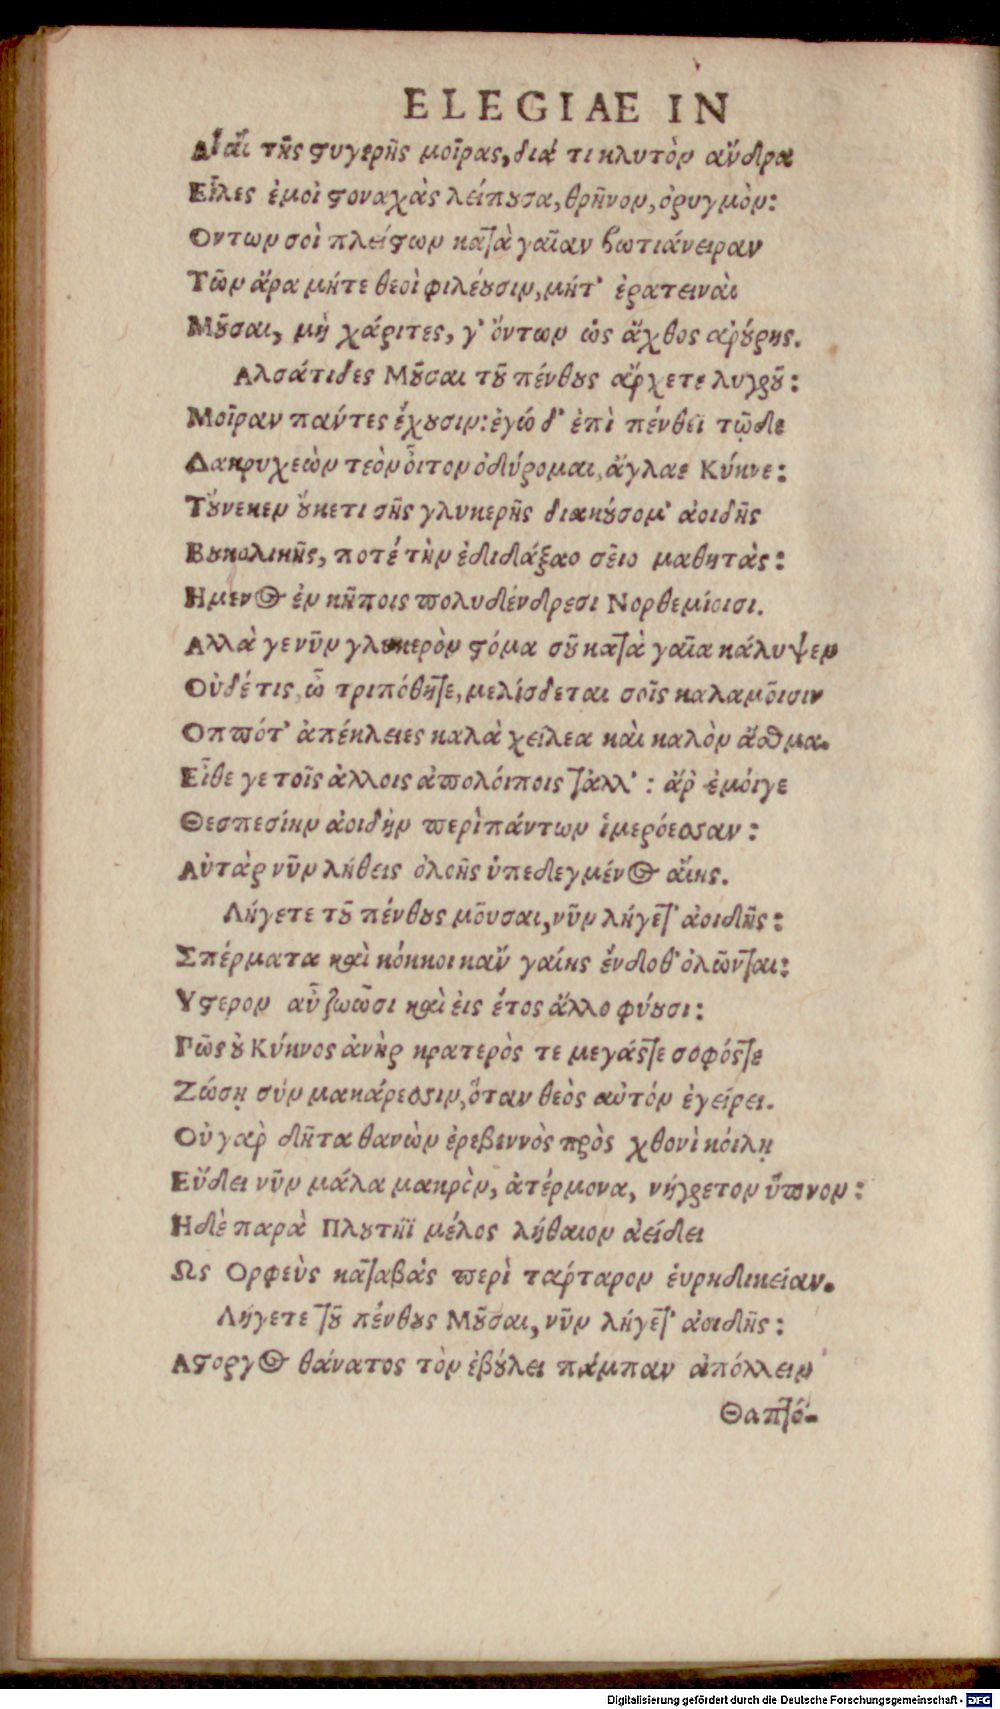 ELEGIAE IN
Αἲ αἲ τῆς ϛυγερῆς μοῖρας, διά τι κλυτὸν ἄνδρα
Εἷλες ἐμοὶ ϛοναχὰς λείπȣσα, θρῆνον, ὀρυγμὸν:
Οντων σοὶ πλείϛων κατὰ γαῖαν βωτιάνειραν
Τῶν ἄρα μήτε θεοὶ φιλέȣσιν, μήτ' ἐρατειναὶ
Μȣ̃σαι, μὴ χάριτες, γ' ὄντων ὡς ἄχθος ἀρȣ́ρης.
Αλσάτιδες Μȣ̃σαι τȣ̃ πένθȣς ἄρχετε λυγρȣ̃:
Μοῖραν πάντες ἔχȣσιν: ἐγώ δ' ἐπὶ πένθεϊ τῷδε
Δακρυχεὼν τεὸν οἶτον ὀδύρομαι, ἄγλαε Κύκνε:
Τȣ́νεκεν ȣ́κετι σῆς γλυκερῆς διακȣ́σομ' ἀοιδῆς
Βȣκολικῆς, ποτέ τὴν ἐδιδάξαο σεῖο μαθητὰς:
Ημενος ἐν κῆποις πολυδένδρεσι Νορθεμίοισι.
Αλλὰ γε νῦν γλυκερὸν ϛόμα σȣ̃ κατὰ γαῖα κάλυψεν
Οὐδέτις, ὦ τριπόθητε, μελίσδεται σοῖς καλαμοῖσιν
Οππότ' ἀπέκλειες καλὰ χείλεα καὶ καλὸν ἄσθμα.
Εἶθε γε τοῖς ἀλλοις ἀπολόιποις τἀλλ' : ἄρ ἐμόιγε
Θεσπεσίην ἀοιδὴν περὶ πάντων ἱμερόεσσαν:
Αὐτὰρ νῦν λήθεις ὀλοῆς ὑπεδεγμένος αἴης.
Λήγετε τȣ̃ πένθȣς μοῦσαι, νῦν λήγετ' ἀοιδῆς:
Σπέρματα καὶ κόκκοι κἂν γαίης ἔνδοθ' ὀλῶνται:
Υϛερον αὖ ζωῶσι καὶ εἰς ἔτος ἄλλο φύȣσι:
Γῶς ȣ̓ Κύκνος ἀνὴρ κρατερὸς τε μεγάς τε σοφός τε
Ζώσῃ σύν μακάρεσσιν, ὅταν θεὸς αὐτόν ἐγείρει.
Οὐ γαρ δῆτα θανὼν ἐρεβεννὸς πρὸς χθονὶ κόιλῃ
Εὕδει νῦν μάλα μακρὸν, ἀτέρμονα, νήγρετον ὕπνον:
Ηδὲ παρὰ Πλȣτῆϊ μέλος λήθαιον ἀείδει
Ως Ορφεὺς καταβὰς περὶ τάρταρον ἐυρηδικείαν.
Λήγετε τȣ̃ πένθȣς Μȣ̃σαι, νῦν λήγετ' ἀοιδῆς:
Αϛοργος θάνατος τὸν ἐβȣ́λει πάμπαν ἀπόλλειν
Θαπτό-
Digitalisierung gefördert durch die Deutsche Forschungsgemeinschaft - DFG